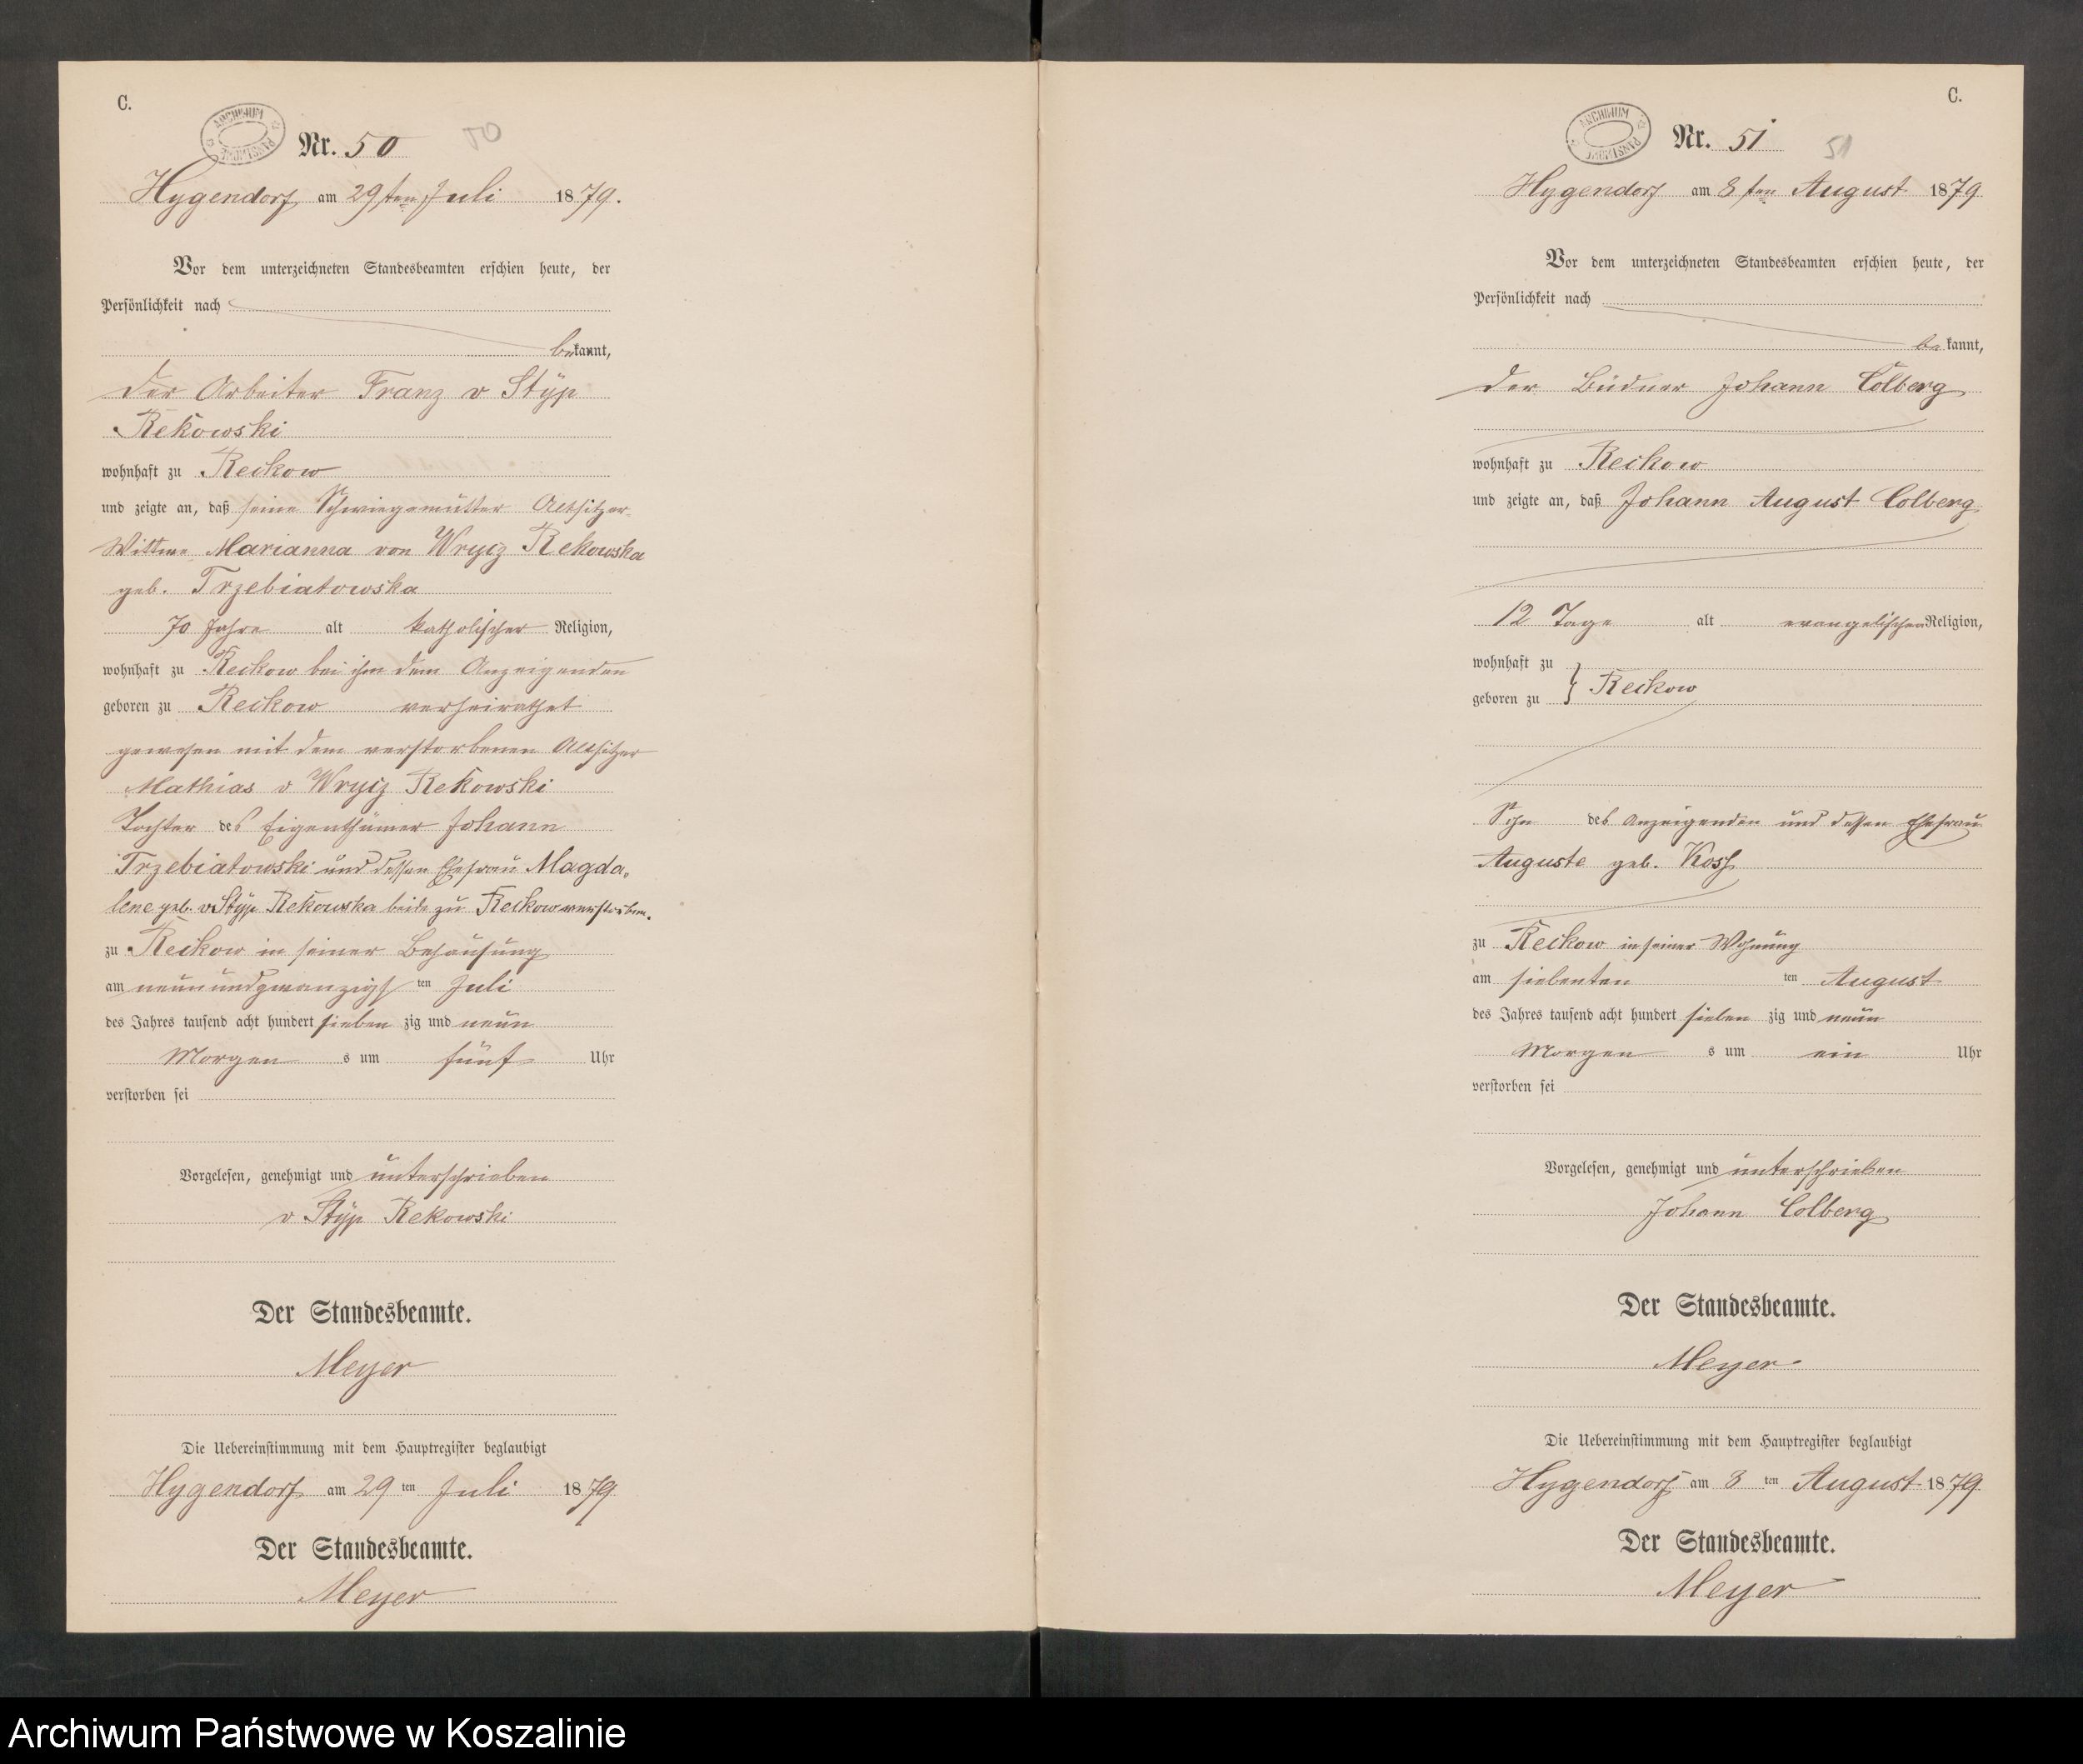 C.
ARCHIWUM PAŃSTWOWE
Nr. 50
50
Hygendorf am 29ten Juli 1879.
Vor dem unterzeichneten Standesbeamten erschien heute, der
Persönlichkeit nach
bekannt,
der Arbeiter Franz v Styp
Rekowski
wohnhaft zu Reckow
und zeigte an, daß seine Schwiegermutter Altsitzer
Wittwe Marianna von Wrycz Rekowska
geb. Trzebiatowska
70 Jahre alt katholischer Religion,
wohnhaft zu Reckow bei ihm dem Anzeigenden
geboren zu Reckow verheirathet
gewesen mit dem verstorbenen Altsitzer
Mathias v Wrycz Rekowski
Tochter des Eigenthümer Johann
Trzebiatowski und dessen Ehefrau Magda-
lene geb. v Styp Rekowska beide zu Reckow verstorben.
zu Reckow in seiner Behausung
am neunundzwanzigsten Juli
des Jahres tausend acht hundert sieben zig und neun
Morgen s um fünf Uhr
verstorben sei
Vorgelesen, genehmigt und unterschrieben
v Styp Rekowski
Der Standesbeamte.
Meyer
Die Uebereinstimmung mit dem Hauptregister beglaubigt
Hygendorf am 29 ten Juli 1879
Der Standesbeamte.
Meyer
C.
ARCHIWUM PAŃSTWOWE
Nr. 51
51
Hygendorf am 8ten August 1879
Vor dem unterzeichneten Standesbeamten erschien heute, der
Persönlichkeit nach
bekannt,
der Büdner Johann Colberg
wohnhaft zu Reckow
und zeigte an, daß Johann August Colberg
12 Tage alt evangelischen Religion,
wohnhaft zu
geboren zu } Reckow
Sohn des Anzeigenden und dessen Ehefrau
Auguste geb. Koss
zu Reckow in seiner Wohnung
am siebenten ten August
des Jahres tausend acht hundert sieben zig und neun
Morgen s um ein Uhr
verstorben sei
Vorgelesen, genehmigt und unterschrieben
Johann Colberg
Der Standesbeamte.
Meyer
Die Uebereinstimmung mit dem Hauptregister beglaubigt
Hygendorf am 8 ten August 1879
Der Standesbeamte.
Meyer
Archiwum Państwowe w Koszalinie